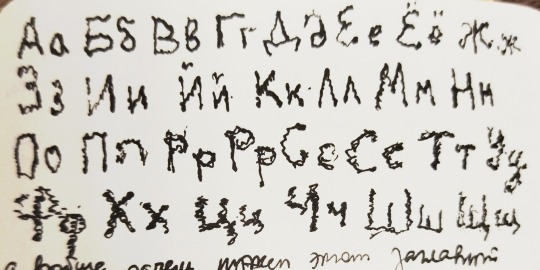 Аа Бб Вв Гг Дд Ее Ёё Жж
Зз Ии Йй Кк Лл Мм Нн
Оо Пп Рр Рр Сс Сс Тт Уу
Фф Хх Цц Чч Шш Щщ
а вообще этот